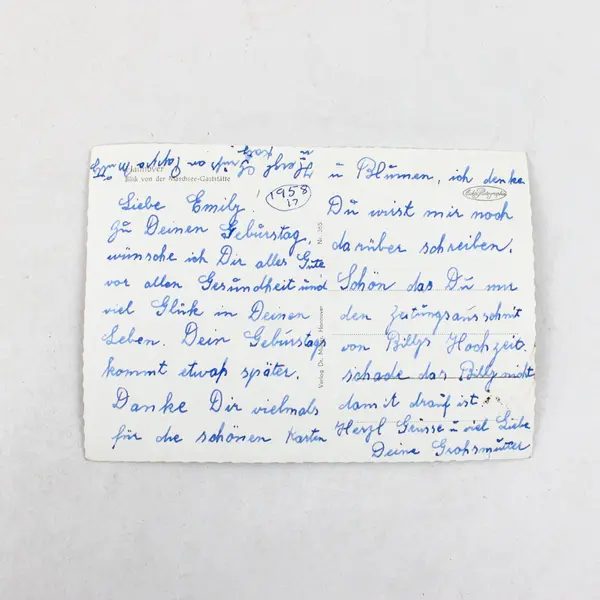 Hannover
Blick von der Mardsee-Gaststätte
1958
17
Liebe Emily!
Zu Deinen Geburstag,
wünsche ich Dir alles Gute
vor allen Gesundheit und
viel Glük in Deinen
Leben. Dein Geburstags
kommt etwaß später.
Danke Dir vielmals
für die schönen Karten
Nr. 265
Verlag Dr. Hannover
u Blumen, ich denke
Du wirst mir noch
darüber schreiben.
Schön das Du mir
den Zeitungsausschnit
von Billys Hochzeit.
schade das Billy nicht
damit drauf ist.
Herzl Grüsse u viel Liebe
Deine Grohsmutter